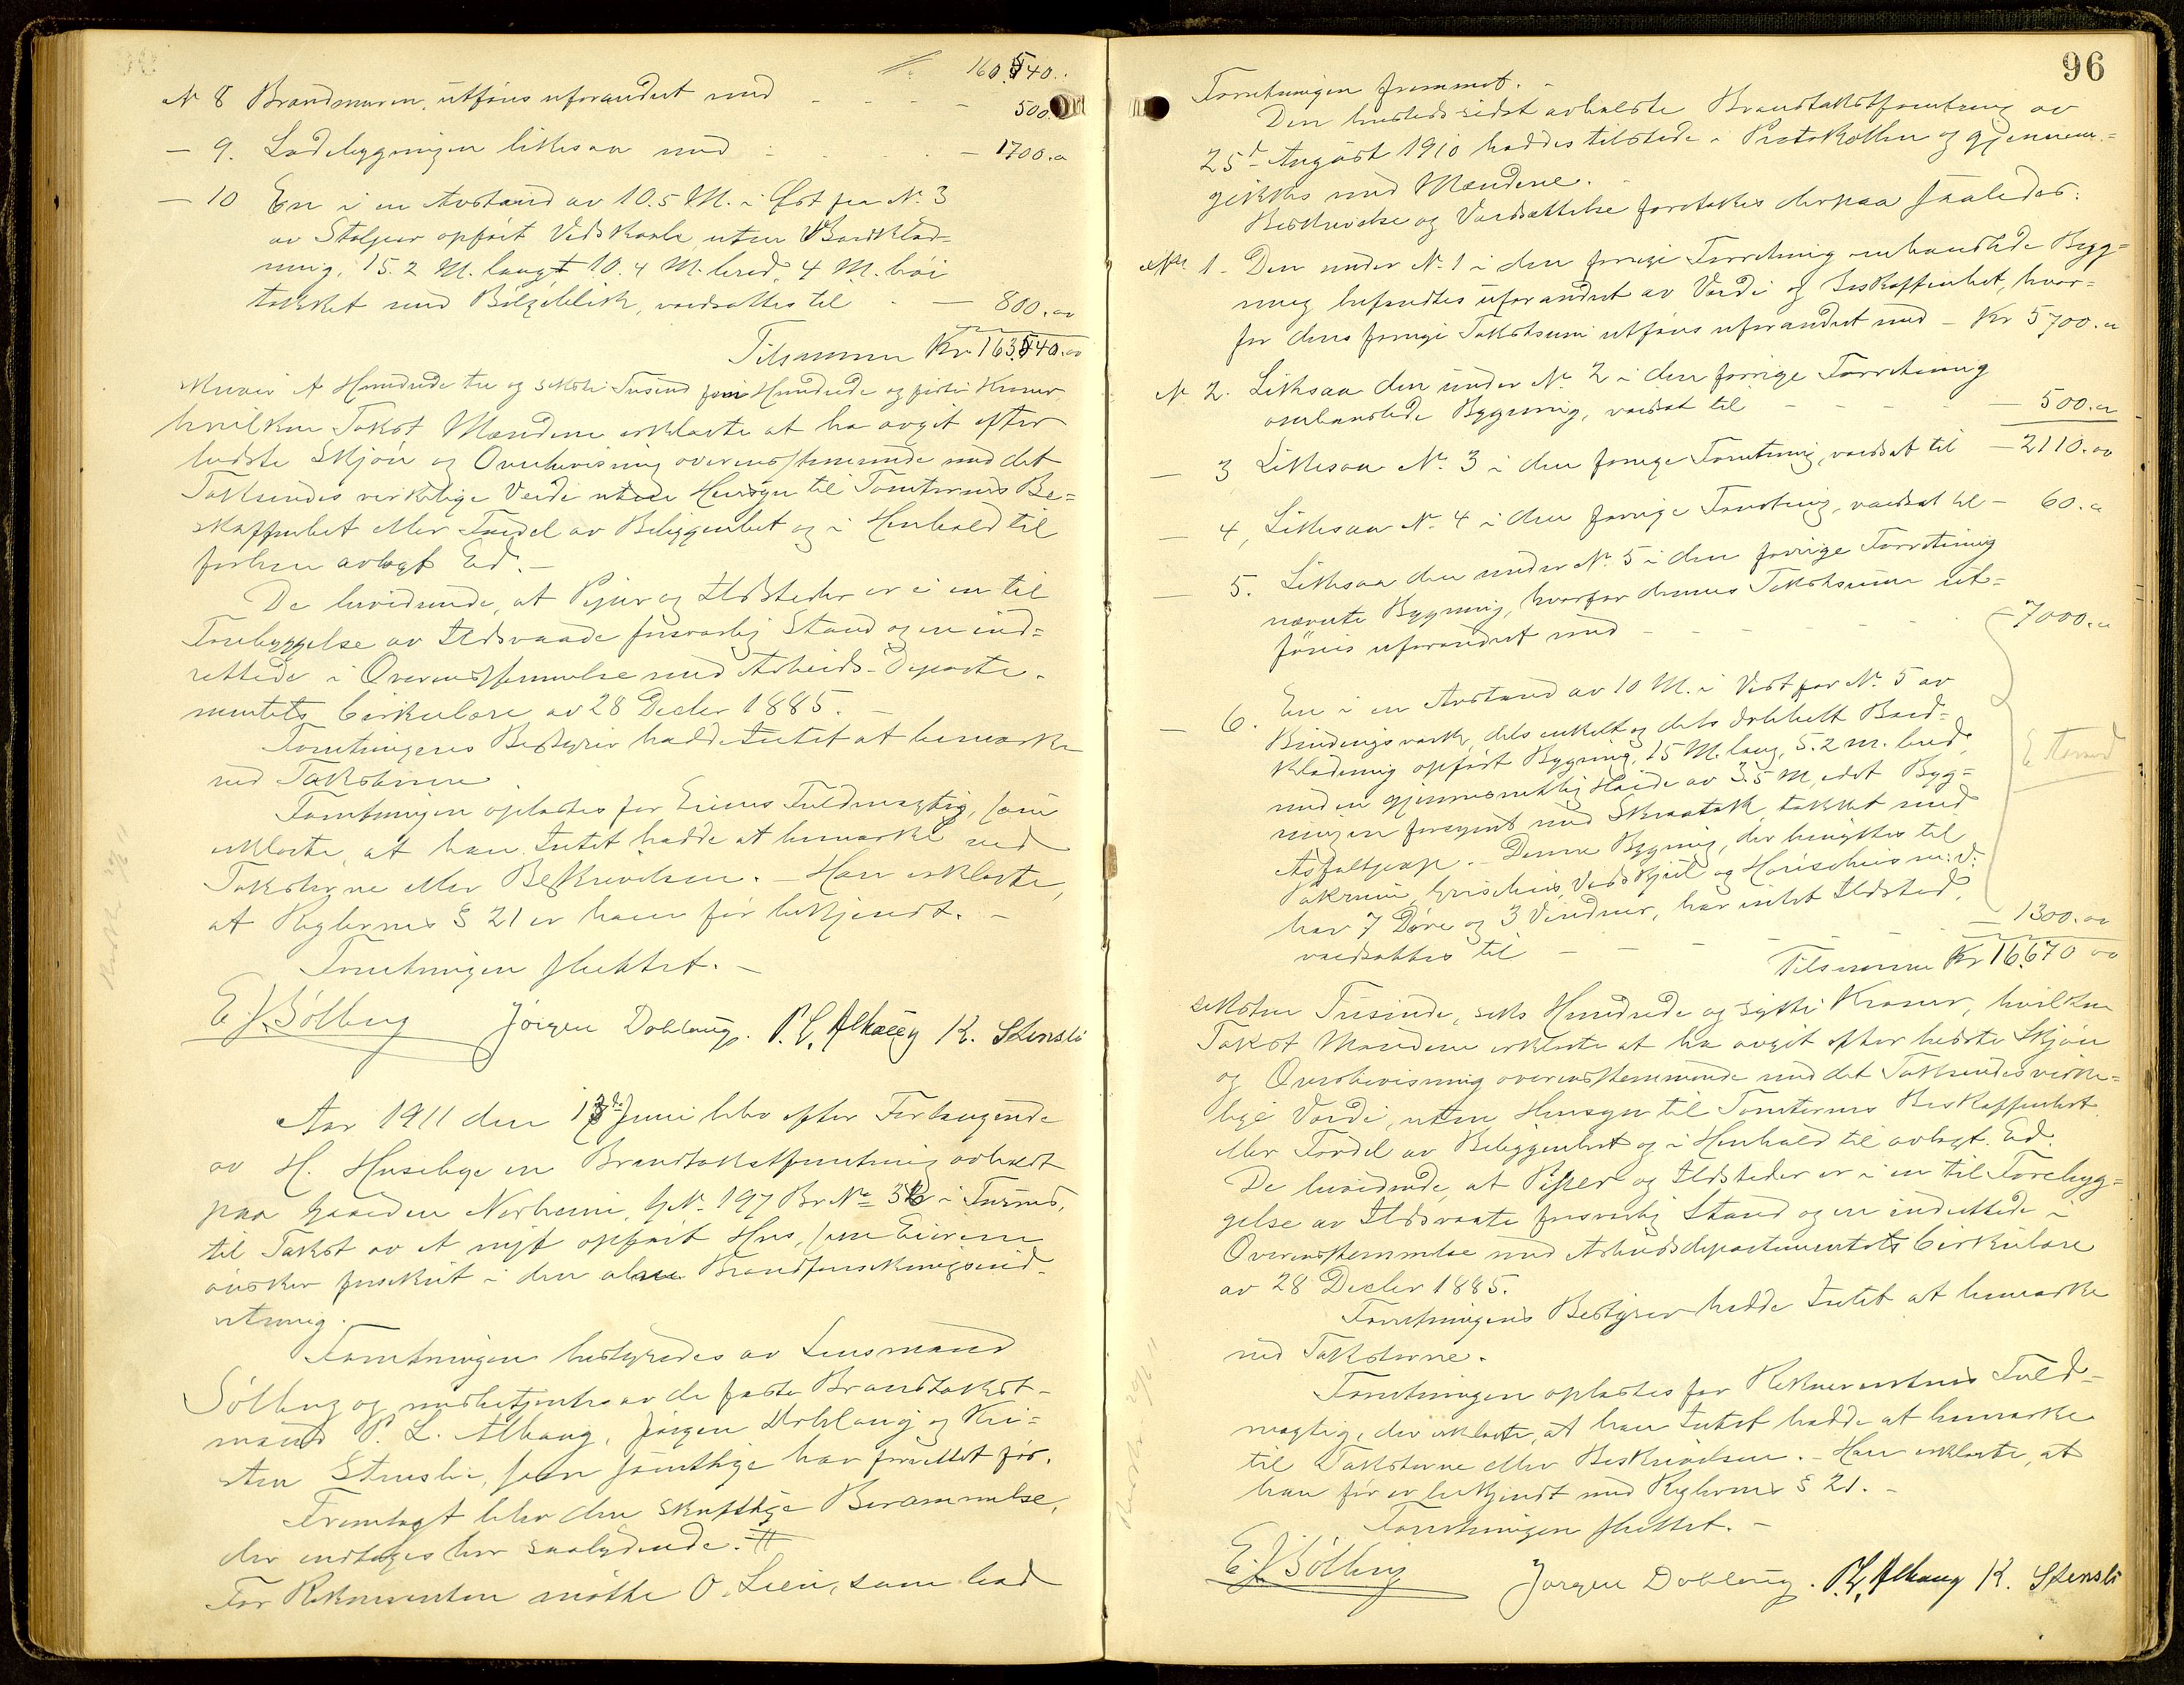 Kr. 160.540..
N. 8 Brandmuren, utføres uforandret med - - - - 500.00
— 9. Ladebygningen likesaa med - . . . — 1700.00
— 10 En i en Avstand av 10.5 M. i Øst fra N. 3
av Stolper opført Vedskaale, uten Bordklæd-
ning, 15.2 M. langt 10.4 M. bred, 4 M. høi
takket med Bølgeblik, værdsættes til - — 800.00
Tilsammen Kr. 163.540.00
skriver Et Hundrede tre og seksti Tusend fem Hundrede og førti Kroner,
hvilken Takst Mændene erklærte at ha avgit efter
bedste Skjøn og Overbevisning overensstemmende med det
Takserdes virkelige Værdi uten Hensyn til Tomternes Be=
skaffenhet eller Fordel av Beliggenhet og i Henhold til
forhen avlagt Ed. —
De bevidnede, at Piper og Ildsteder er i en til
Forebyggelse av Ildsvaade forsvarlig Stand og er ind=
rettede i Overensstemmelse med Arbeids-Departe-
mentets Cirkulære av 28 Decbr 1885. —
Forretningens Bestyrer hadde Intet at bemærke
ved Taksterne.
Forretningen oplæstes for Eierens Fuldmægtig, som
erklærte, at han Intet hadde at bemærke ved
Taksterne eller Beskrivelsen. — Han erklærte,
at Reglernes § 21 er ham før bekjendt. —
Forretningen sluttet. —
E. J. Sölberg Jörgen Dobloug. P. L. Alhaug K. Stensli
Aar 1911 den 13de Juni blev efter Forlangende
av H. Huseby en Brandtakstforretning avholdt
paa Gaarden Norheim, G.N. 197 Br. No 3 i Furnes,
til Takst av et nyt opført Hus, som Eieren
ønsker forsikret i den alm. Brandforsikringsind-
retning.
Forretningen bestyredes av Lensmand
Sölberg og medbetjentes av de faste Brandtakst-
mænd P. L. Alhaug, Jörgen Dobloug og Kri=
sten Stensli, som samtlige har forrettet før.
Fremlagt blev den skriftlige Berammelse,
der indtages her saalydende. #
For Rekvirenten møtte O. Lien, som bad
96
Forretningen fremmet. -
Den hersteds sidst avholdte Brandtakstforretning av
25de August 1910 haddes tilstede i Protokollen og gjennem=
gikkes med Mændene.
Beskrivelse og Værdsættelse foretokes derpaa saaledes:
No 1. Den under N. 1 i den forrige Forretning omhandlede Byg=
ning befandtes uforandret av Værdi og Beskaffenhet, hvor=
for dens forrige Takstsum utføres uforandret med — Kr 5700.00
N. 2. Likesaa den under N. 2 i den forrige Forretning
omhandlede Bygning, værdsat til - - - - — 500.00
— 3 Likesaa N. 3 i den forrige Forretning, værdsat til — 2110.00
— 4, Likesaa N. 4 i den forrige Forretning, værdsat til — 60.00
— 5. Likesaa den under N. 5 i den forrige Forretning
nævnte Bygning, hvorfor dennes Takstsum ut=
føres uforandret med - - - - - — 7000.00
— 6. En i en Avstand av 10 M. i Vest for N. 5 av
Bindingsverk, dels enkelt og dels dobbelt Bord=
klædning opført Bygning, 15 M. lang, 5.2 m. bred,
med en gjennemsnitlig Høide av 3.5 M, idet Byg=
ningen forsynt med Skraatak, takket med
Asfaltpap. - Denne Bygning, der benyttes til
Vaskerum, Grisehus, Vedskjul og Hønsehus m. v.
har 7 Døre og 3 Vinduer, har intet Ildsted,
værdsættes til - - - - - — 1300.00
Tilsammen Kr 16.670 00
seksten Tusinde, seks Hundrede og sytti Kroner, hvilken
Takst Mændene erklærte at ha avgit efter bedste Skjøn
og Overbevisning overensstemmende med det Takserdes virke=
lige Værdi, uten Hensyn til Tomternes Beskaffenhet
eller Fordel av Beliggenhet og i Henhold til avlagt Ed.
De bevidnede, at Piper og Ildsteder er i en til Forebyg=
gelse av Ildsvaade forsvarlig Stand og er indrettede i
Overensstemmelse med Arbeidsdepartementets Cirkulære
av 28 Decbr 1885.
Forretningens Bestyrer hadde Intet at bemærke
ved Taksterne.
Forretningen oplæstes for Rekvirentens Fuld=
mægtig, der erklærte, at han Intet hadde at bemærke
til Taksterne eller Beskrivelsen. - Han erklærte, at
han før er bekjendt med Reglernes § 21. -
Forretningen sluttet. -
E. J. Sölberg Jörgen Dobloug. P. L. Alhaug K. Stensli